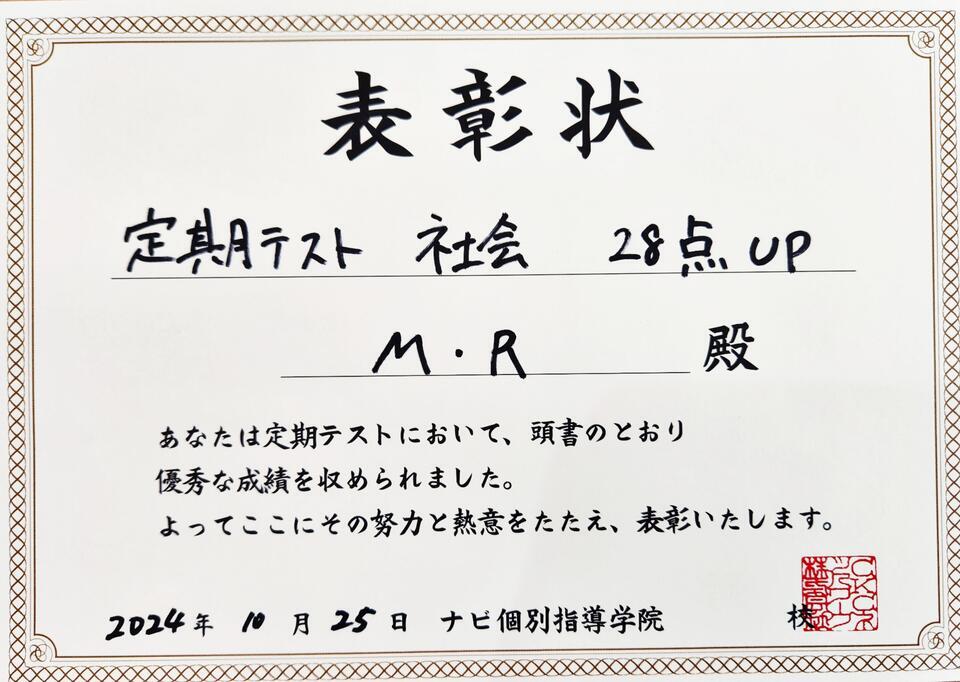 表彰状
定期テスト 社会 28点UP
M・R 殿
あなたは定期テストにおいて、頭書のとおり
優秀な成績を収められました。
よってここにその努力と熱意をたたえ、表彰いたします。
2024年 10月 25日 ナビ個別指導学院 校